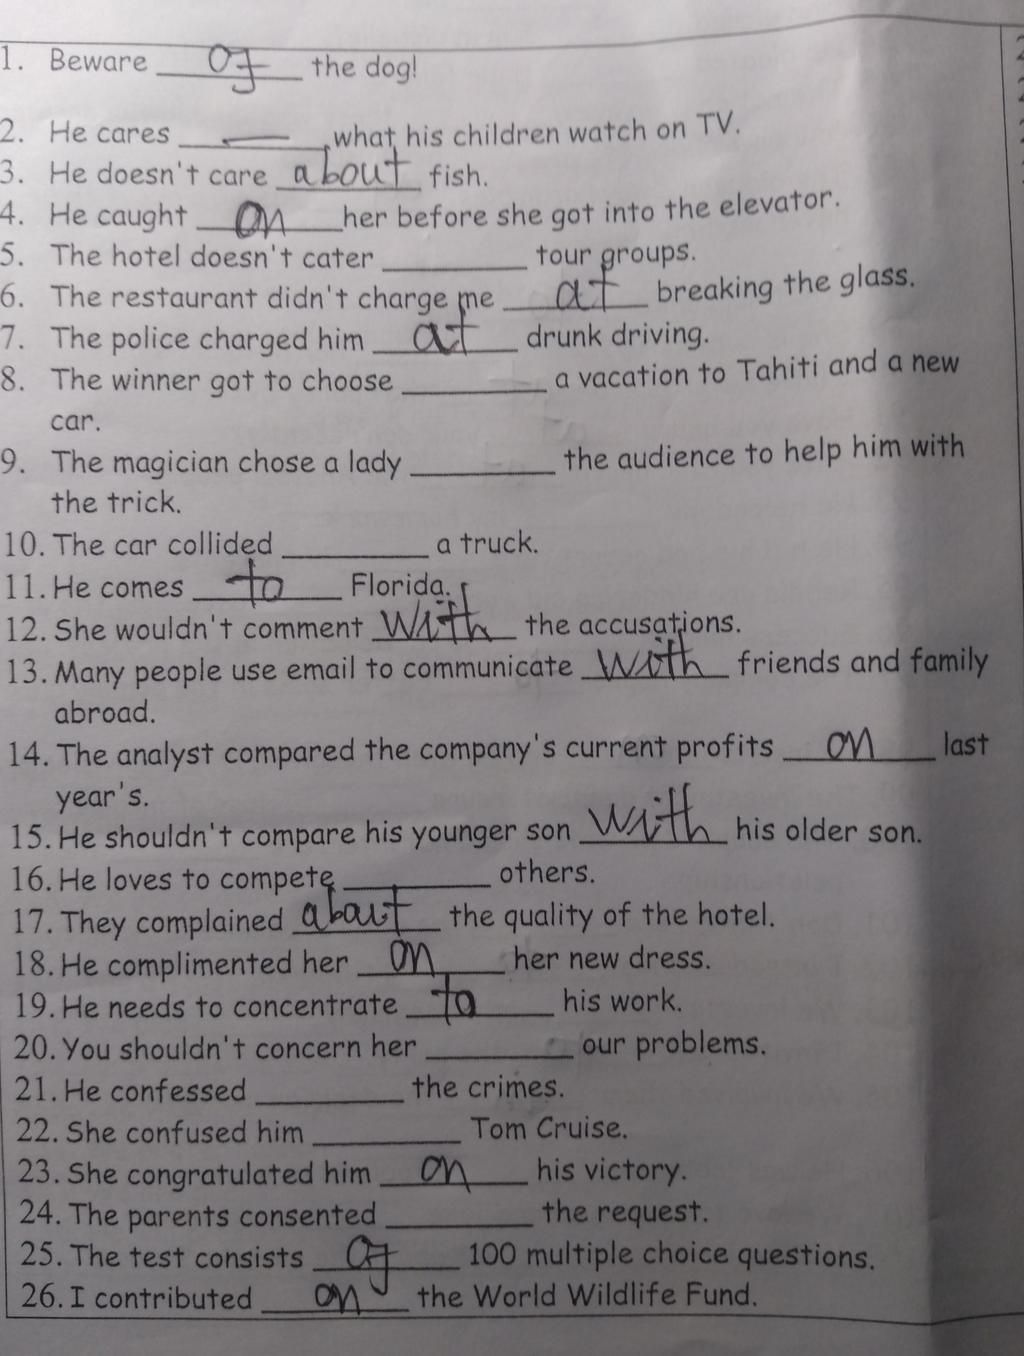 1. Beware of the dog!
2. He cares — what his children watch on TV.
3. He doesn't care about fish.
4. He caught on her before she got into the elevator.
5. The hotel doesn't cater __________ tour groups.
6. The restaurant didn't charge me at breaking the glass.
7. The police charged him at drunk driving.
8. The winner got to choose __________ a vacation to Tahiti and a new
car.
9. The magician chose a lady __________ the audience to help him with
the trick.
10. The car collided __________ a truck.
11. He comes to Florida.
12. She wouldn't comment with the accusations.
13. Many people use email to communicate with friends and family
abroad.
14. The analyst compared the company's current profits on last
year's.
15. He shouldn't compare his younger son with his older son.
16. He loves to compete __________ others.
17. They complained about the quality of the hotel.
18. He complimented her on her new dress.
19. He needs to concentrate to his work.
20. You shouldn't concern her __________ our problems.
21. He confessed __________ the crimes.
22. She confused him __________ Tom Cruise.
23. She congratulated him on his victory.
24. The parents consented __________ the request.
25. The test consists of 100 multiple choice questions.
26. I contributed on the World Wildlife Fund.